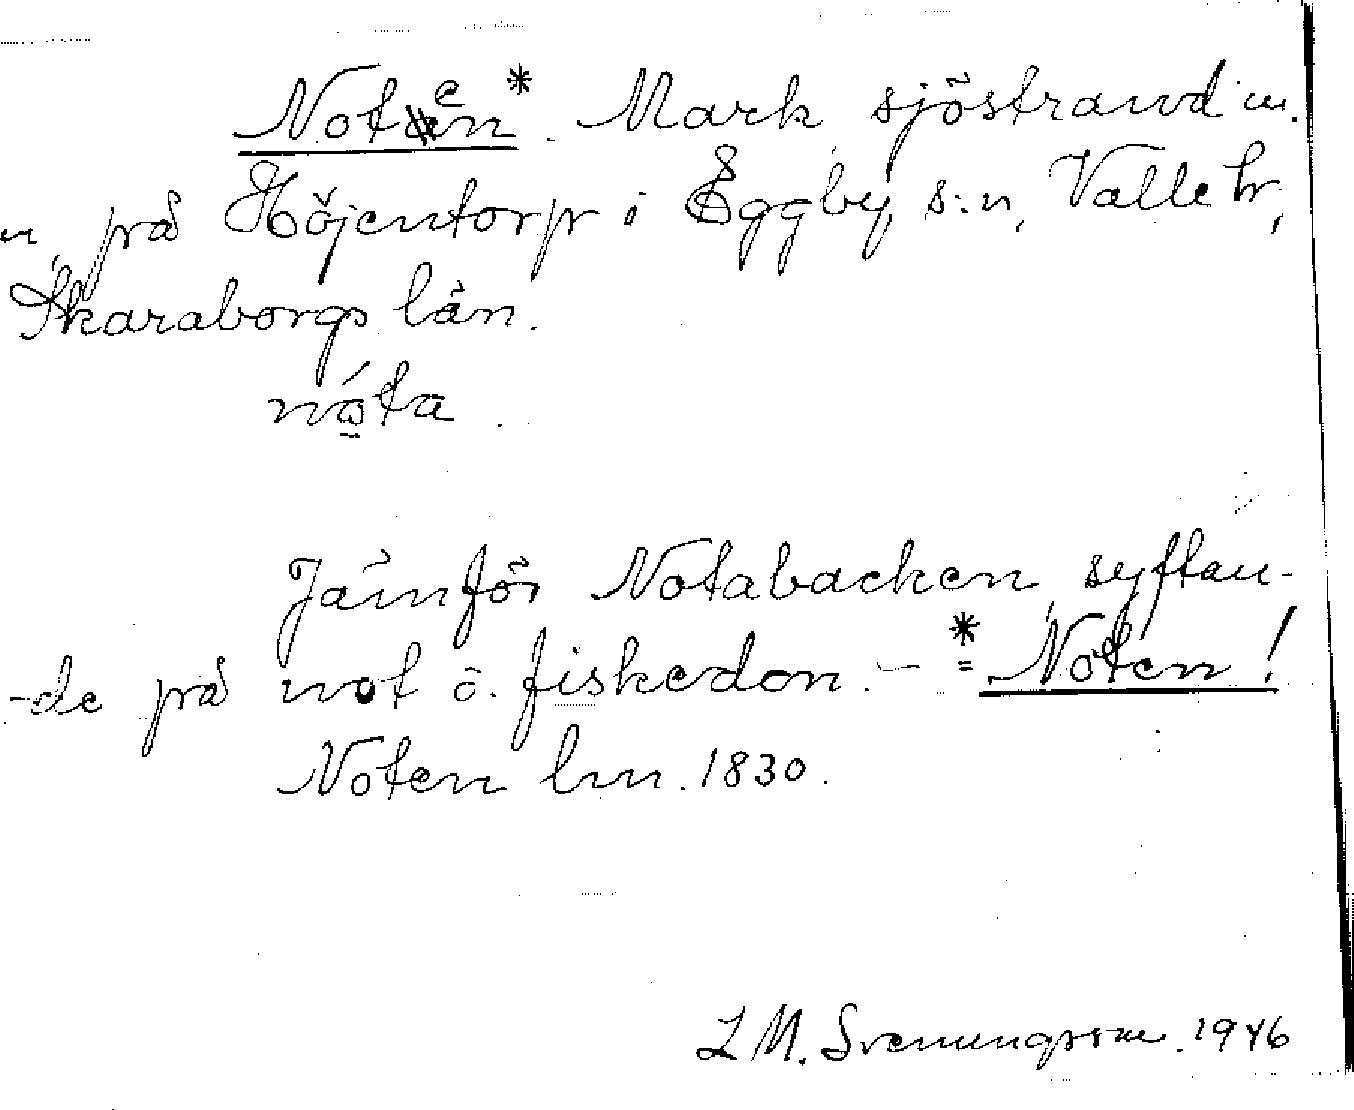 Noten*. Mark, sjöstrand m.
m, på Höjentorp i Eggby s:n, Valle hr,
Skaraborgs län.
nó̱ta.
Jämför Notabacken, syftan-
-de på not ö. fiskedon. — *= Noten!
Noten lm. 1830.
L M. Svenungsson. 1946